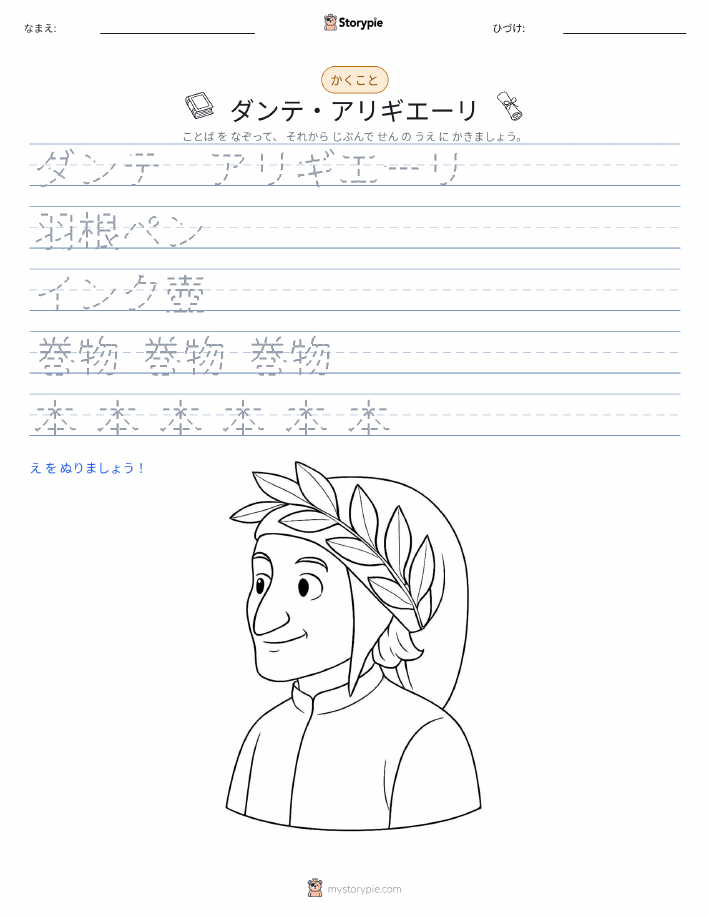 なまえ:
Storypie
ひづけ:
かくこと
ダンテ・アリギエーリ
ことば を なぞって、 それから じぶんで せん の うえ に かきましょう。
ダンテ アリギエーリ
羽根ペン
インク壺
巻物 巻物 巻物
本 本 本 本 本 本
え を ぬりましょう！
mystorypie.com